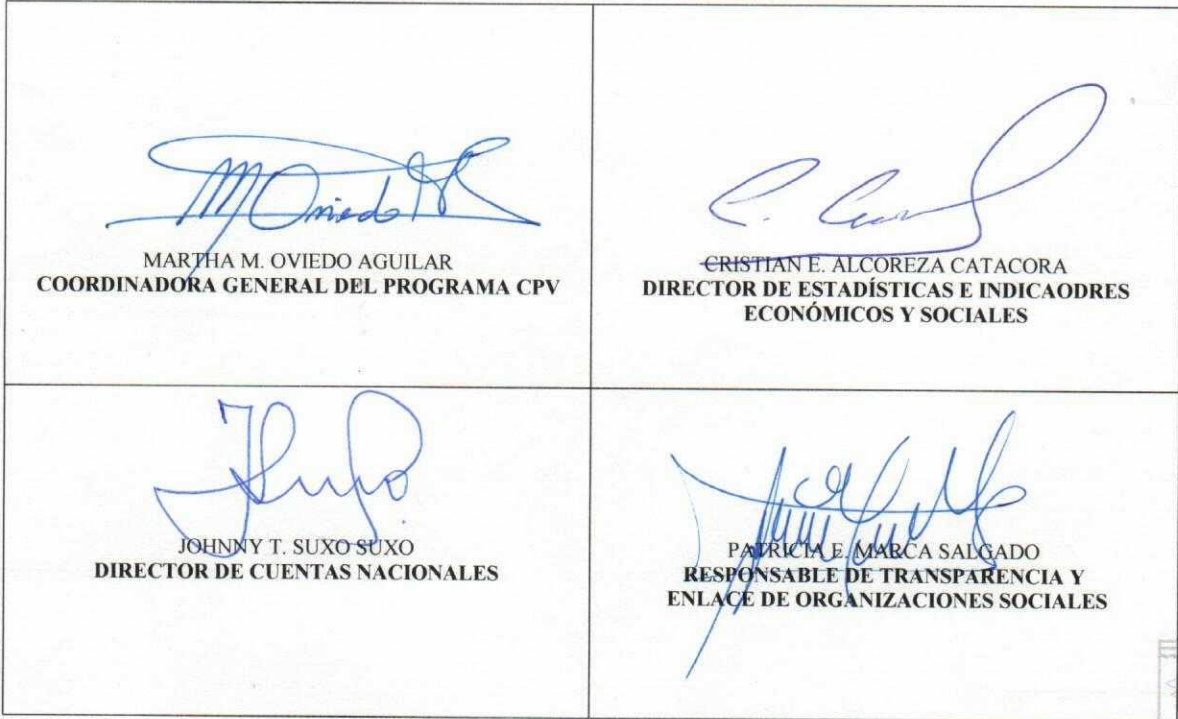 MARTHA M. OVIEDO AGUILAR
COORDINADORA GENERAL DEL PROGRAMA CPV
CRISTIAN E. ALCOREZA CATACORA
DIRECTOR DE ESTADÍSTICAS E INDICAODRES
ECONÓMICOS Y SOCIALES
JOHNNY T. SUXO SUXO
DIRECTOR DE CUENTAS NACIONALES
PATRICIA E. MARCA SALGADO
RESPONSABLE DE TRANSPARENCIA Y
ENLACE DE ORGANIZACIONES SOCIALES